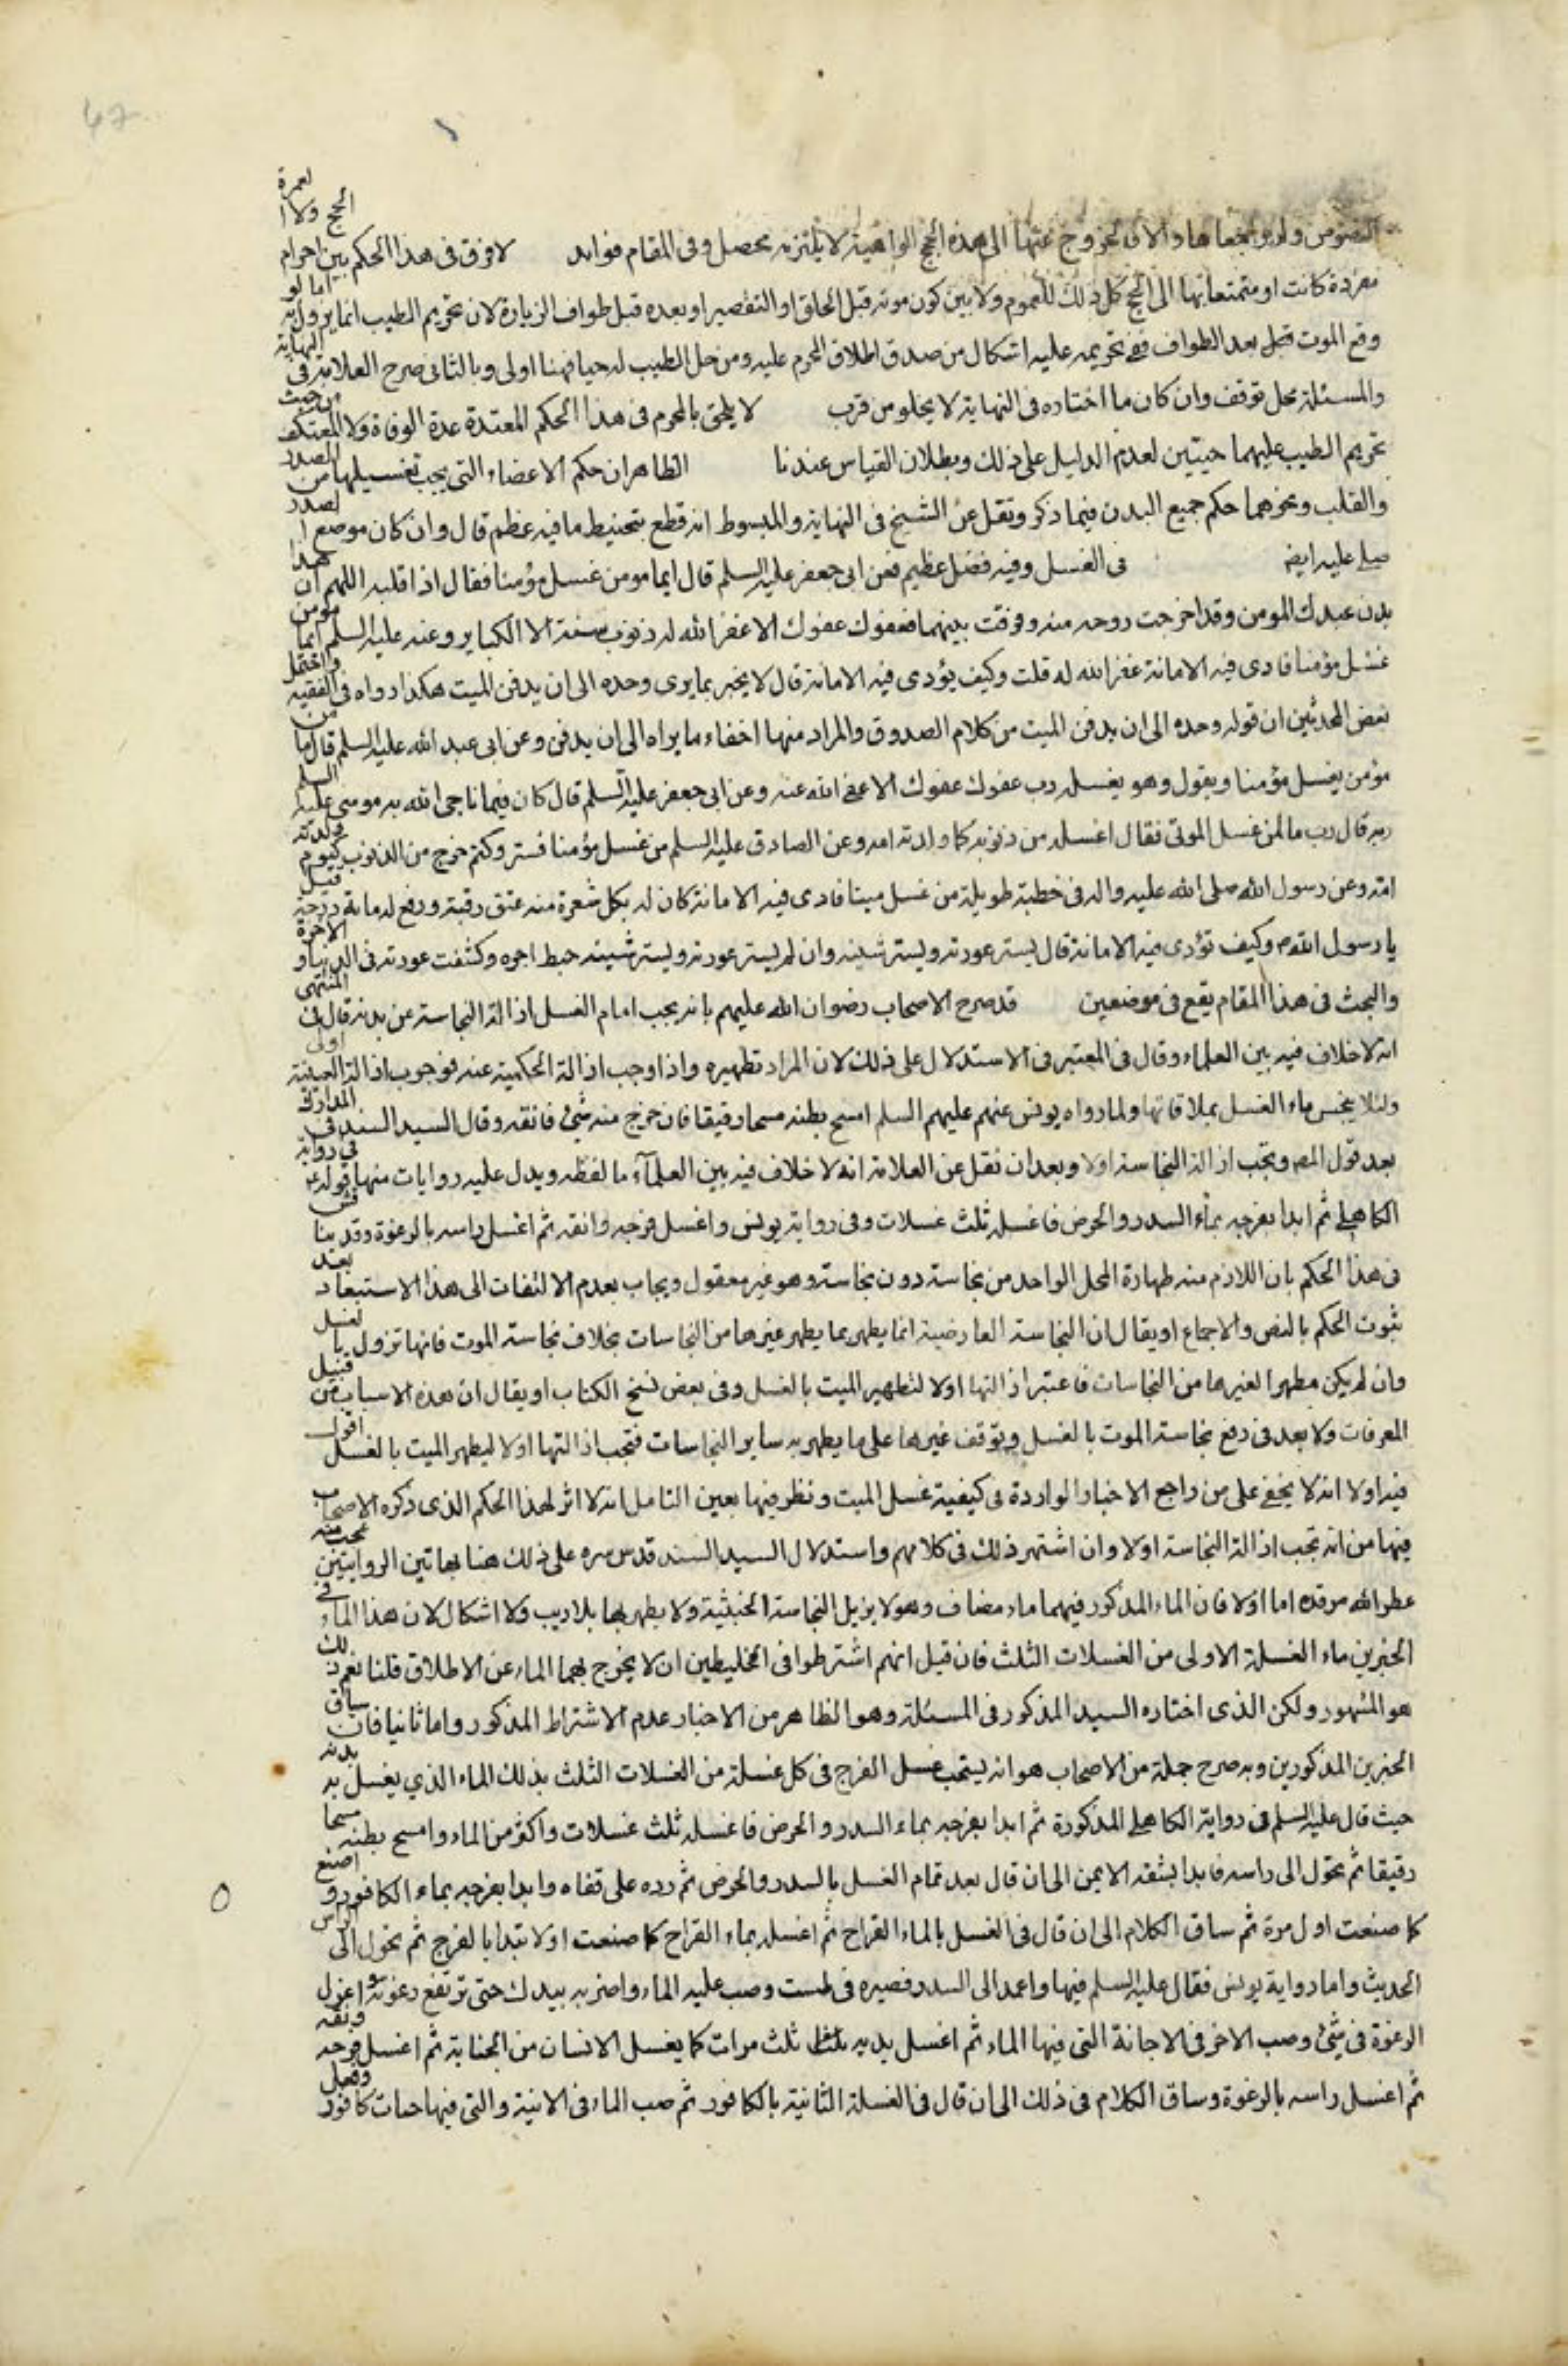 النصوص ولم يو بمجعا ها والا فالخروج عنها الى هذه الحجج الواهية لا يلتزمه محصل وفى المقام فوايد لا فرق فى هذا الحكم بين احرام الحج ولا العمرة
مفردة كانت او متمتعا بها الى الحج كل ذلك للعموم ولا بين كون موته قبل الحلق او التقصير او بعده قبل طواف الزيارة لان تحريم الطيب انما يزول به اما لو
وقع الموت قبل بعد الطواف ففى تحريمه عليه اشكال من صدق اطلاق المحرم عليه ومن حل الطيب له حيا فهنا اولى وبالثانى صرح العلامة فى النهاية
والمسئلة محل توقف وان كان ما اختاره فى النهاية لا يخلو من قرب لا يلحق بالمحرم فى هذا الحكم المعتدة عدة الوفاة ولا المعتكف من حيث
تحريم الطيب عليهما حيتين لعدم الدليل على ذلك وبطلان القياس عندنا الظاهر ان حكم الاعضاء التى يجب تغسيلها من الصدر
والقلب ونحوهما حكم جميع البدن فيما ذكر ونقل عن الشيخ فى النهاية والمبسوط انه قطع بتحنيط ما فيه عظم قال وان كان موضع الصدر
صلى عليه ايضه فى الغسل وفيه فضل عظيم فعن ابى جعفر عليه السلم قال ايما مومن غسل مؤمنا فقال اذا قلبه اللهم ان هذا
بدن عبدك المومن وقد اخرجت روحه منه وفرقت بينهما فعفوك عفوك الا غفر الله له ذنوب سنة الا الكباير وعنه عليه السلم ايما مومن
غسل مؤمنا فادى فيه الامانة غفر الله له قلت وكيف يؤدى فيه الامانة قال لا يخبر بما يرى وحده الى ان يدفن الميت هكذا رواه فى الفقيه واحتمل
بعض المحدثين ان قوله وحده الى ان يدفن الميت من كلام الصدوق والمراد منها اخفاء ما يراه الى ان يدفن وعن ابى عبد الله عليه السلم قال ما من
مؤمن يغسل مؤمنا ويقول وهو يغسله رب عفوك عفوك الا عفى الله عنه وعن ابى جعفر عليه السلم قال كان فيما ناجى الله به موسى عليه السلم
ربه قال رب ما لمن غسل الموتى فقال اغسله من ذنوبه كما ولدته امه وعن الصادق عليه السلم من غسل مؤمنا فستر وكتم خرج من الذنوب كيوم ولدته
امه وعن رسول الله صلى الله عليه واله فى خطبة طويلة من غسل ميتا فادى فيه الامانة كان له بكل شعرة منه عتق رقبة ورفع له ماية درجة قيل
يا رسول الله وكيف تؤدى فيه الامانة قال يستر عورته ويستر شينه وان لم يستر عورته ويستر شينه حبط اجره وكشفت عورته فى الدنيا و الاخرة
والبحث فى هذا المقام يقع فى موضعين قد صرح الاصحاب رضوان الله عليهم بانه يجب امام الغسل ازالة النجاسة عن بدنه قال فى المنتهى
انه لا خلاف فيه بين العلماء وقال فى المعتبر فى الاستدلال على ذلك لان المراد تطهيره واذا وجب ازالة الحكمية عنه فوجوب ازالة العينية اولى
ولئلا ينجس ماء الغسل بملاقاتها ولما رواه يونس عنهم عليهم السلم امسح بطنه مسحا رفيقا فان خرج منه شئ فانقه وقال السيد السند فى المدارك
بعد قول المصـ ويجب ازالة النجاسة اولا وبعد ان نقل عن العلامة انه لا خلاف فيه بين العلمآء ما لفظه ويدل عليه روايات منها قوله ع فى رواية
الكاهلى ثم ابدا بفرجه بمآء السدر والحرض فاغسله ثلث غسلات وفى رواية يونس واغسل فرجه وانقه ثم اغسل راسه بالرغوة وقد يناقش
فى هذا الحكم بان اللازم منه طهارة المحل الواحد من نجاسة دون نجاسة وهو غير معقول ويجاب بعدم الالتفات الى هذا الاستبعاد بعد
ثبوت الحكم بالنص والاجماع او يقال ان النجاسة العارضية انما يطهر بما يطهر غيرها من النجاسات بخلاف نجاسة الموت فانها تزول بالغسل
وان لم يكن مطهرا لغيرها من النجاسات فاعتبر ازالتها اولا لتطهير الميت بالغسل وفى بعض نسخ الكتاب او يقال ان هذه الاسباب من قبيل
المعرفات ولا بعد فى رفع نجاسة الموت بالغسل وتوقف غيرها على ما يطهر به ساير النجاسات فتجب ازالتها اولا ليطهر الميت بالغسل اقول
فيه اولا انه لا يخفى على من راجع الاخبار الواردة فى كيفية غسل الميت ونظر فيها بعين التامل انه لا اثر لهذا الحكم الذى ذكره الاصحاب
فيها من انه تجب ازالة النجاسة اولا وان اشتهر ذلك فى كلامهم واستدلال السيد السند قدس سره على ذلك هنا بهاتين الروايتين عجب منه
عطر الله مرقده اما اولا فان الماء المذكور فيهما ماء مضاف وهو لا يزيل النجاسة الخبثية ولا يطهر بها بلا ريب ولا اشكال لان هذا الماء فى
الخبرين ماء الغسلة الاولى من الغسلات الثلث فان قيل انهم اشترطوا فى الخليطين ان لا يخرج بهما الماء عن الاطلاق قلنا نعم ذلك
هو المشهور ولكن الذى اختاره السيد المذكور فى المسئلة وهو الظاهر من الاخبار عدم الاشتراط المذكور واما ثانيا فان سياق
الخبرين المذكورين وبه صرح جملة من الاصحاب هو انه يستحب غسل الفرج فى كل غسلة من الغسلات الثلث بذلك الماء الذي يغسل به بدنه
حيث قال عليه السلم فى رواية الكاهلى المذكورة ثم ابدا بفرجه بماء السدر والحرض فاغسله ثلث غسلات واكثر من الماء وامسح بطنه مسحا
رفيقا ثم تحول الى راسه فابدا بشقه الايمن الى ان قال بعد تمام الغسل بالسدر والحرض ثم رده على قفاه وابدا بفرجه بماء الكافور و اصنع
كما صنعت اول مرة ثم ساق الكلام الى ان قال فى الغسل بالماء القراح ثم اغسله بماء القراح كما صنعت اولا تبدا بالفرج ثم تحول الى الراس
الحديث واما رواية يونس فقال عليه السلم فيها واعمد الى السدر فصيره فى طست وصب عليه الماء واضربه بيدك حتى ترتفع رغوته واعزل
الرغوة فى شئ وصب الاخر فى الاجانة التى فيها الماء ثم اغسل يديه ثلث مرات كما يغسل الانسان من الجنابة ثم اغسل فرجه ونقه
ثم اغسل راسه بالرغوة وساق الكلام فى ذلك الى ان قال فى الغسلة الثانية بالكافور ثم صب الماء فى الانية والتى فيها حبات كافور وفعل